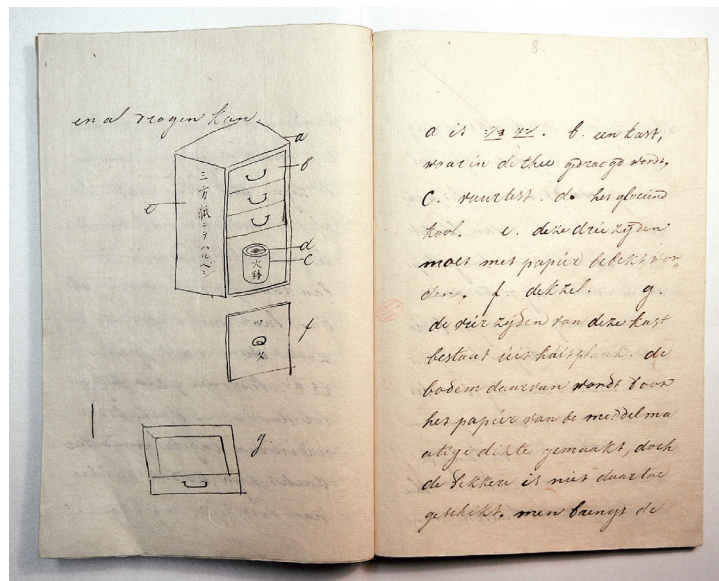 en al vragen kan.
a
b
e
三方紙ニテハルベシ
d
c
火鉢
f
フタ
g.
8
a is . b. een kast,
waar in de thee gedroogd wordt,
C. vuurtest. d. het gloeiend
kool. e. deze drie zyden
moet met papier bedekt wor-
den. f dekzel. g.
de vier zyden van deze kast
bestaat uit houtsplank. de
bodem daarvan wordt door
het papier van de middelma
atige dikte gemaakt, doch
de dikkere is niet daar toe
geschikt. men brengt de